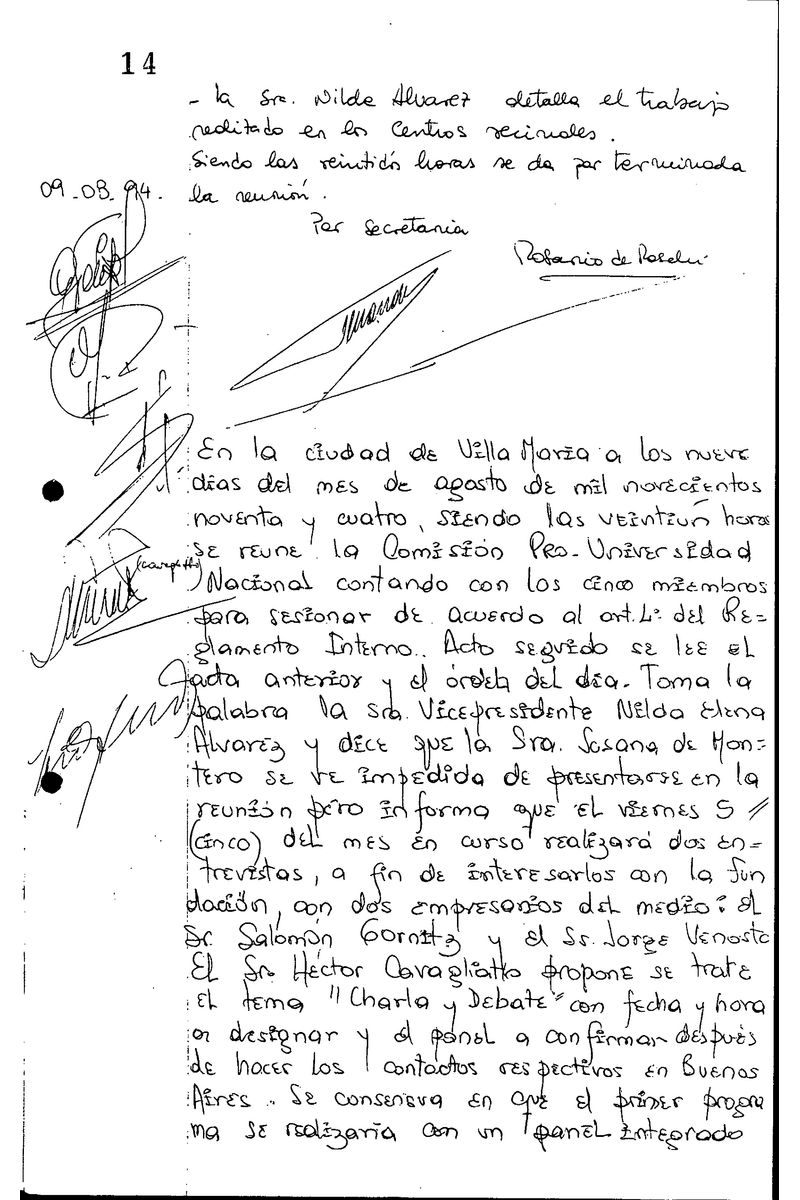 14
- la Sra. Nilde Alvarez detalla el trabajo
realitado en los Centros vecinales.
Siendo las veintidós horas se da por terminada
09-08-94. la reunión.
Por Secretaria
Rosario de
En la ciudad de Villa María a los nueve
días del mes de agosto de mil novecientos
noventa y cuatro, siendo las veintiún horas
se reune la Comisión Pro-Universidad
Nacional contando con los cinco miembros
para sesionar de acuerdo al art. 4º del Re=
glamento Interno. Acto seguido se lee el
acta anterior y el órden del día. Toma la
palabra la Sra. Vicepresidente Nilda Elena
Alvarez y dice que la Sra. Susana de Mon=
tero se ve impedida de presentarse en la
reunión pero informa que el viernes 5 //
(cinco) del mes en curso realizará dos en=
trevistas, a fin de interesarlos con la fun
dación, con dos empresarios del medio: el
Sr. Salomón Gornitz y el Sr. Jorge Venosta
El Sr. Héctor Cavagliatto propone se trate
el tema "Charla y Debate" con fecha y hora
a designar y el panel a confirmar después
de hacer los contactos respectivos en Buenos
Aires. Se conserva en que el primer progra
ma se realizaría con un panel integrado